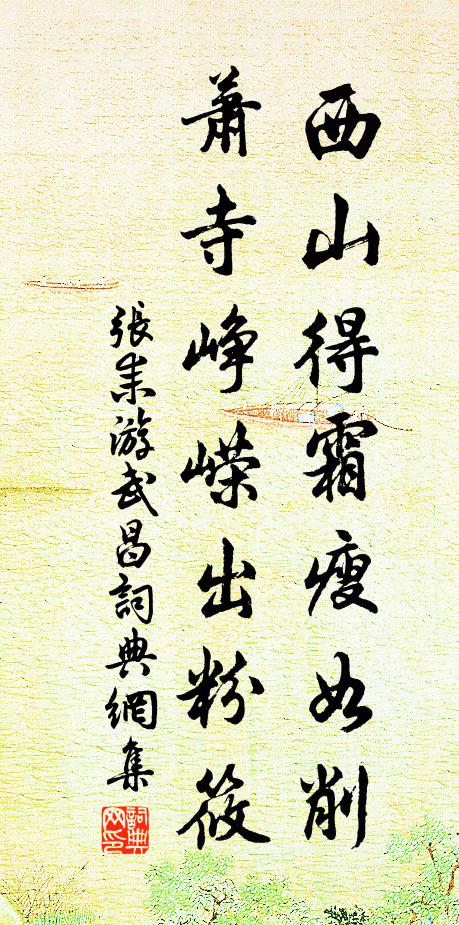 西山得霜瘦如削
蕭寺崢嶸出粉筱
張耒游武昌詞典網集
詞典網印